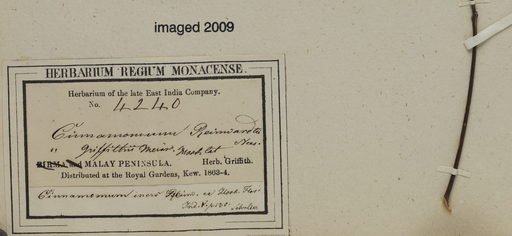 imaged 2009
HERBARIUM REGIUM MONACENSE.
Herbarium of the late East India Company.
No. 4240
Cinnamomum Reinwardtii Nees.
" Griffithii Meissn.
BIRMA and MALAY PENINSULA. Herb. Griffith.
Distributed at the Royal Gardens, Kew. 1863-4.
Cinnamomum iners Reinw. ex Hook. Flor.
Ind. V, p. 130.